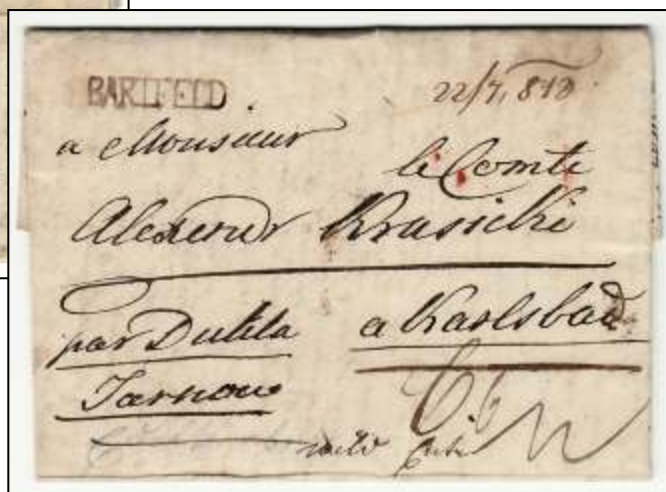 BARTFELD
22/7, 818
a Monsieur
le Comte
Alexender Krasicki
par Dukla a Karlsbad
Tarnow